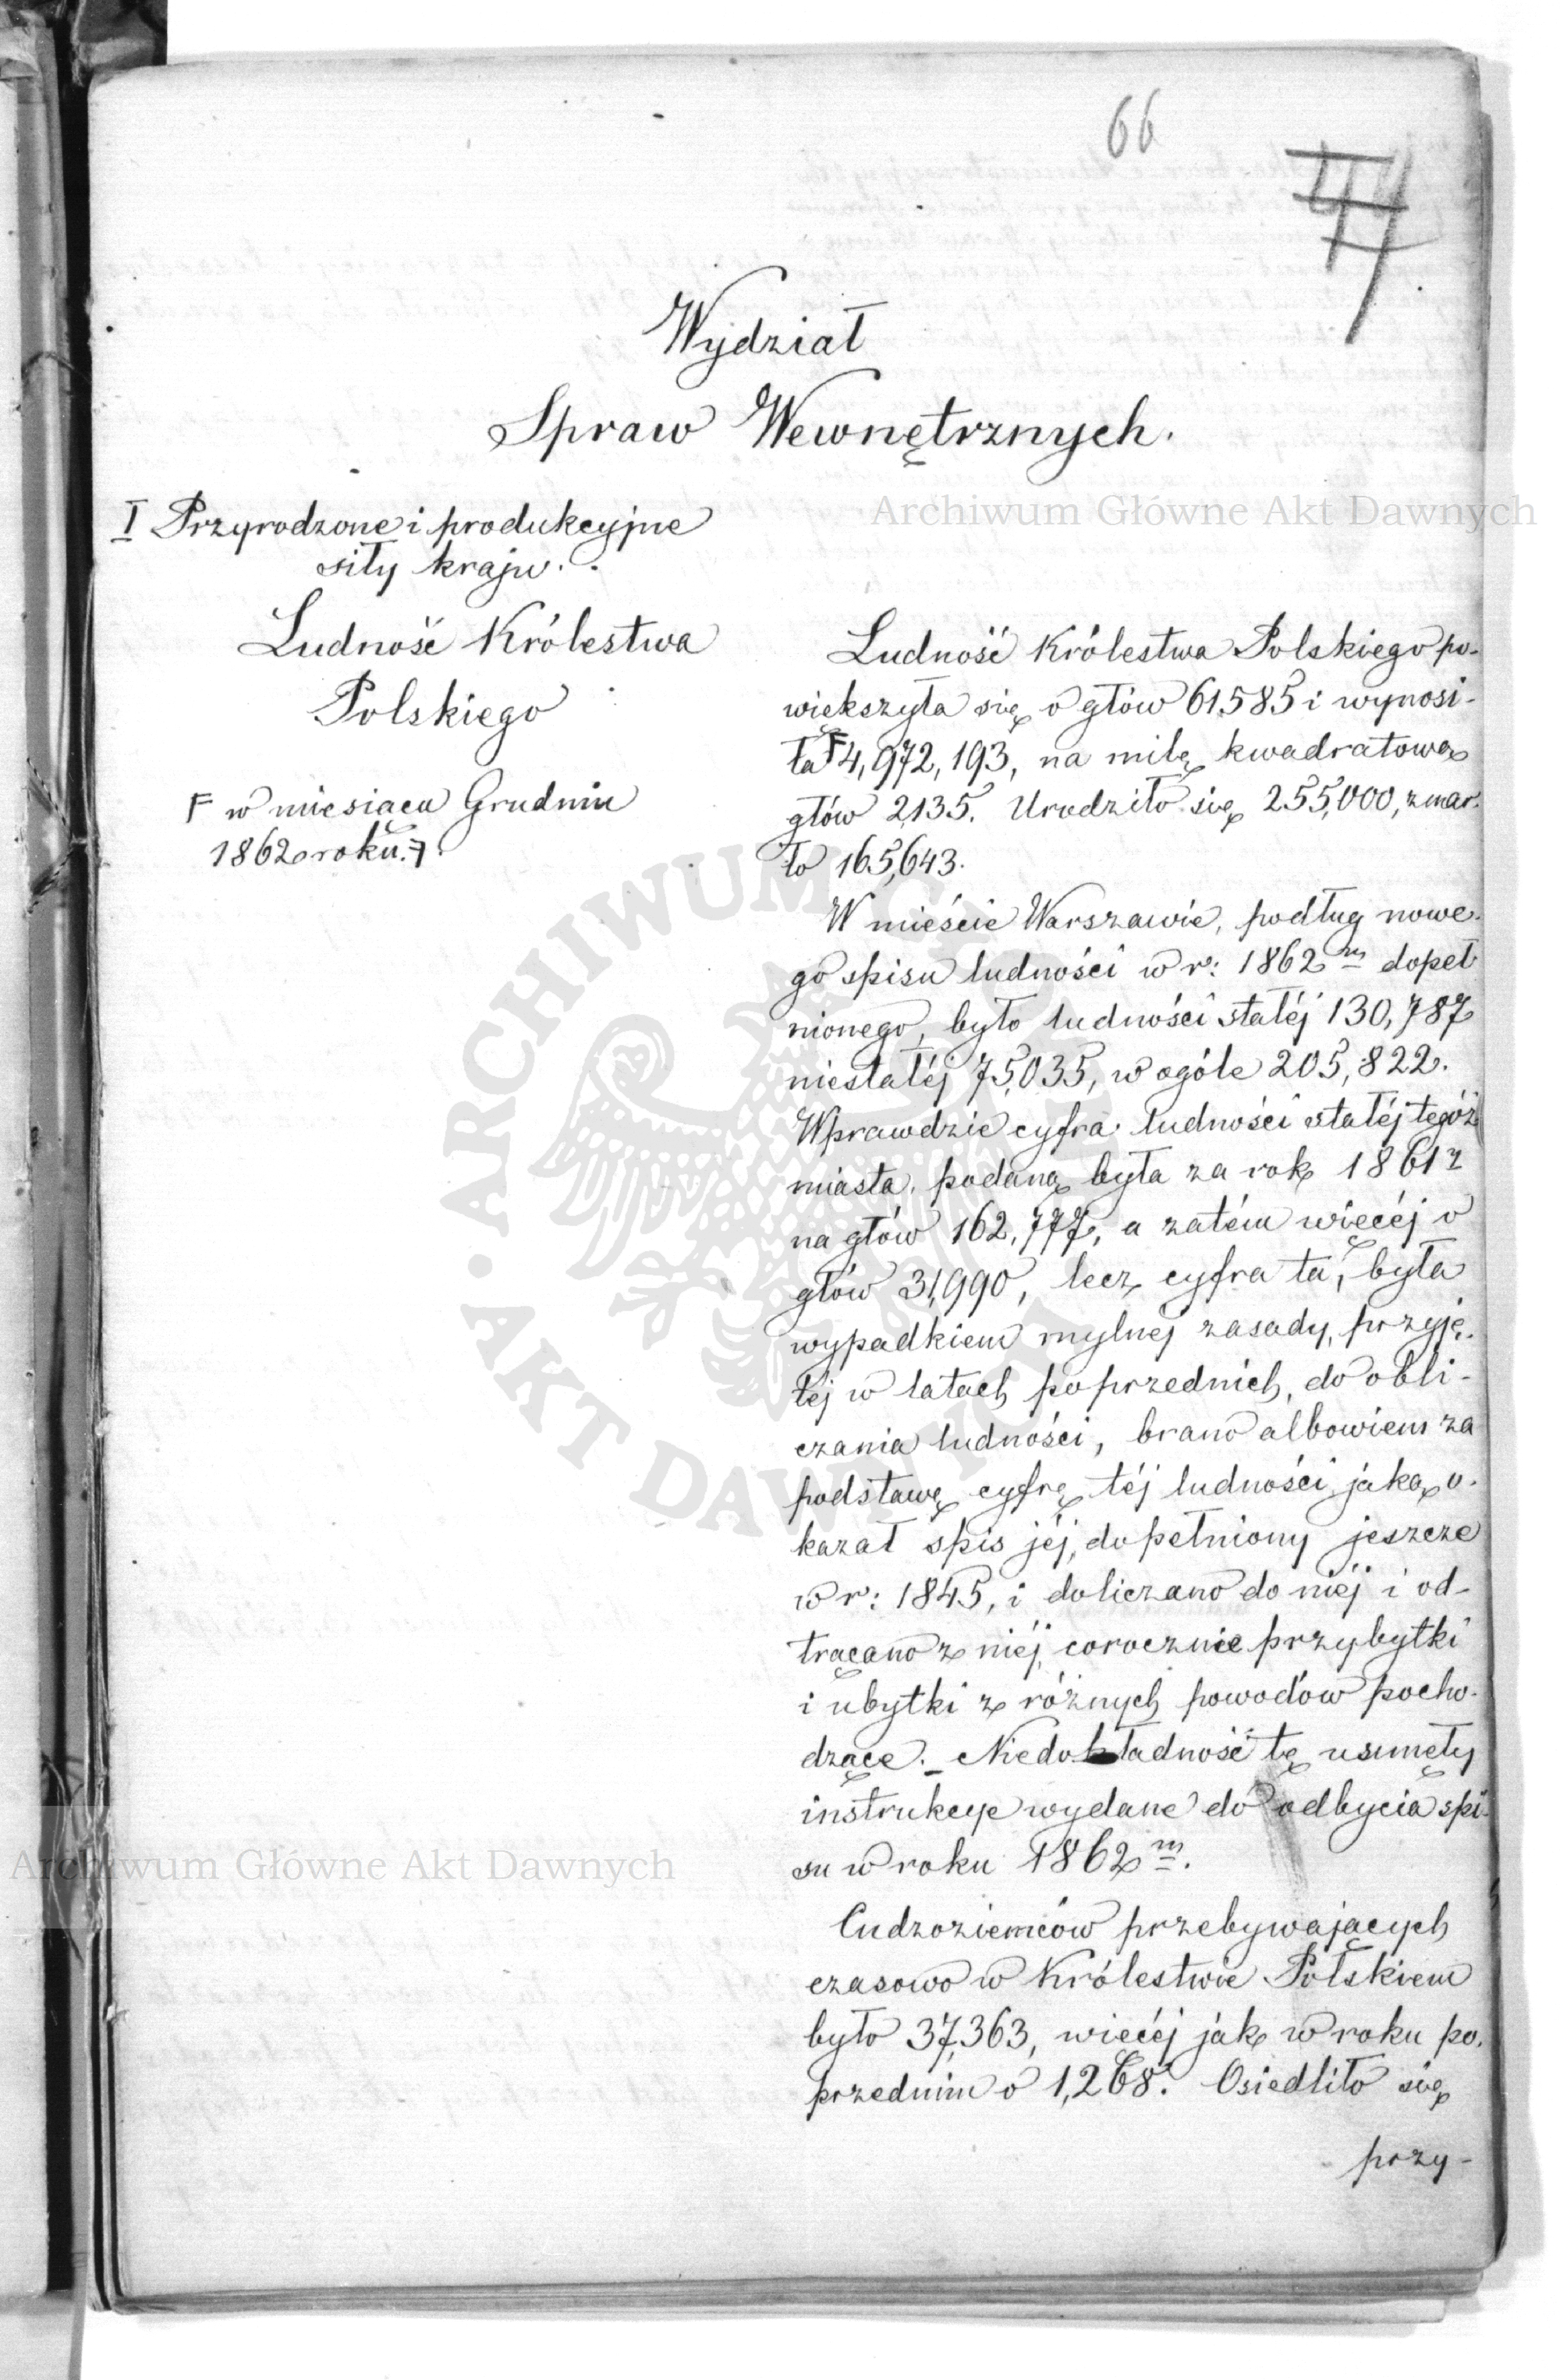 66
Wydział
Spraw Wewnętrznych.
I Przyrodzone i produkcyjne
siły kraju.
Ludność Królestwa
Polskiego
F w miesiącu Grudniu
1862 roku. F
Ludność Królestwa Polskiego po-
większyła się o głów 61585 i wynosi-
ła F 4,972,193, na milę kwadratową
głów 2135. Urodziło się 255,000, zmar-
ło 165,643.
W mieście Warszawie, podług nowe-
go spisu ludności w r: 1862 m dopeł-
nionego, było ludności stałéj 130,787
niestałéj 75,035, w ogóle 205,822.
Wprawdzie cyfra ludności stałéj tegóż
miasta, podaną była za rok 1861 z
na głów 162,777, a zatém więcéj o
głów 31,990, lecz cyfra ta, była
wypadkiem mylnej zasady, przyję-
téj w latach poprzednich, do obli-
czania ludności, brano albowiem za
podstawę cyfrę téj ludności, jaką o-
kazał spis jéj, dopełniony jeszcze
w r: 1845, i doliczano do niéj i od-
trącano z niéj corocznie przybytki
i ubytki z różnych powodów pocho-
dzące. Niedokładność tę usunęły
instrukcye wydane do odbycia spi-
su w roku 1862 m.
Cudzoziemców przebywających
czasowo w Królestwie Polskiem
było 37,363, więcéj jak w roku po-
przednim o 1,268. Osiedliło się
przy-
Archiwum Główne Akt Dawnych
Archiwum Główne Akt Dawnych
ARCHIWUM GŁÓWNE
AKT DAWNYCH